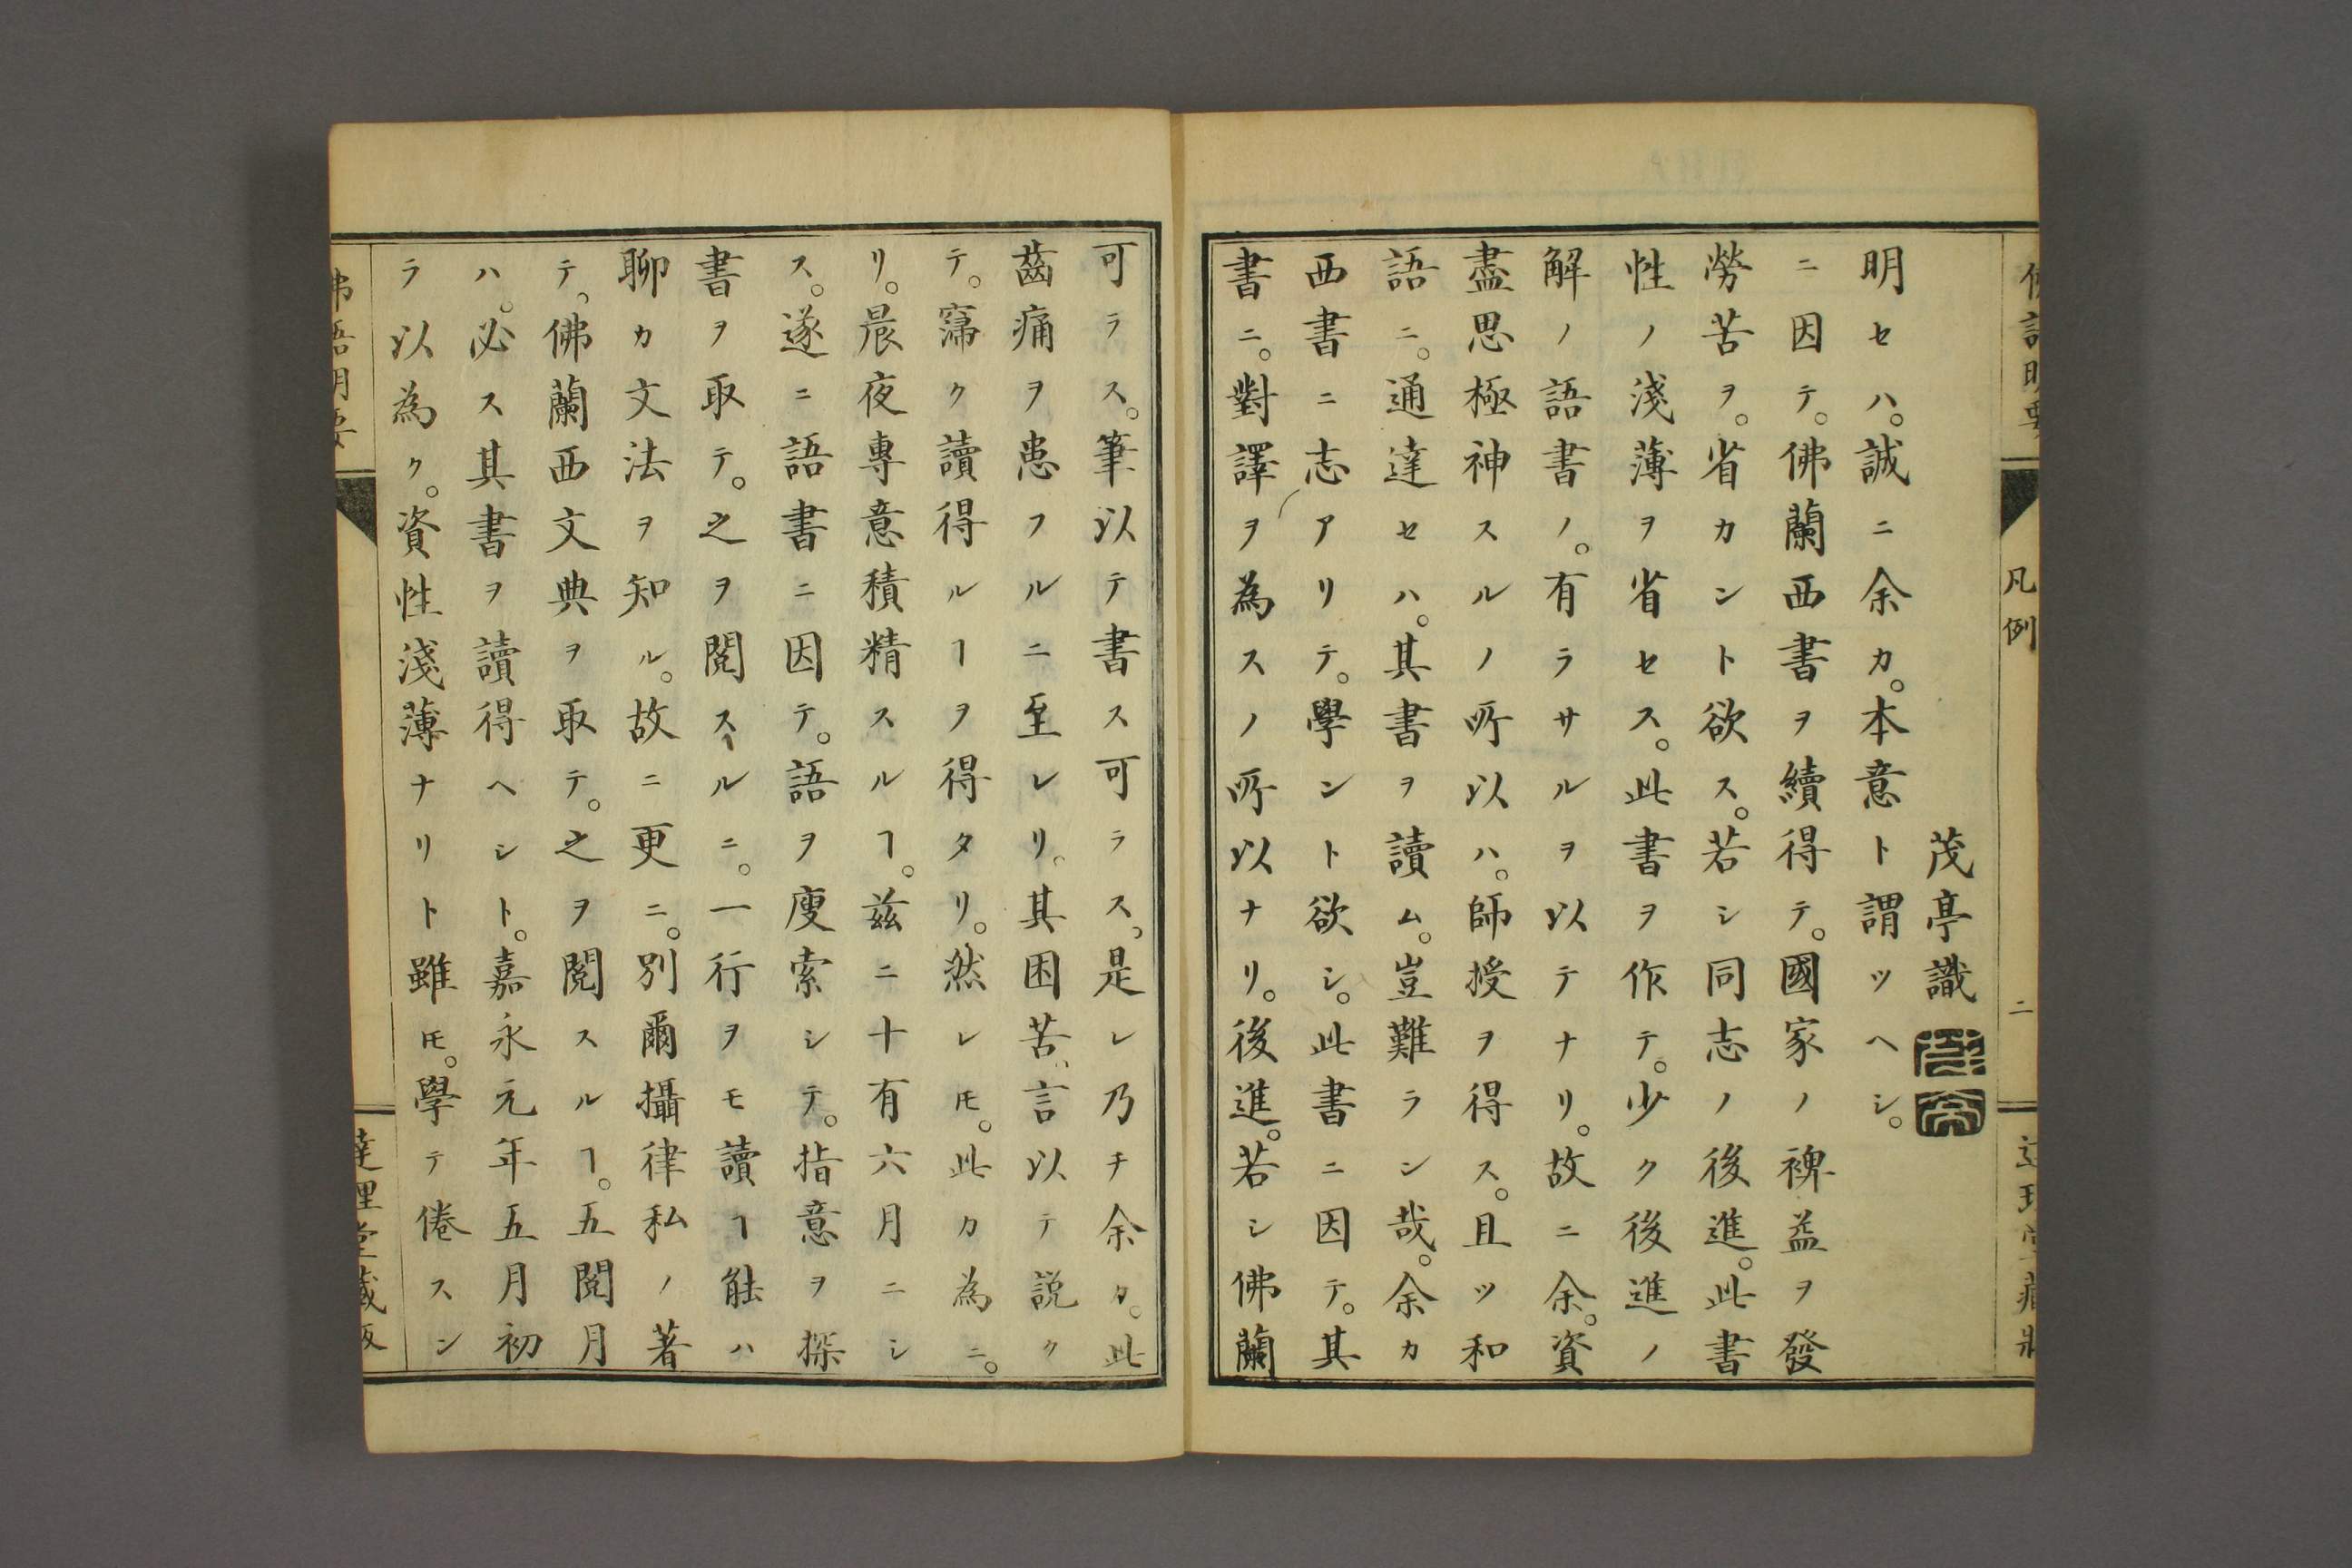 佛語明要
達理堂藏版
ラ以為ク。資性淺薄ナリト雖𪜈。學テ倦スン
ハ。必ス其書ヲ讀得ヘシト。嘉永元年五月初
テ、佛蘭西文典ヲ取テ。之ヲ閲スルヿ。五閲月
聊カ文法ヲ知ル。故ニ更ニ。別爾攝律私ノ著
書ヲ取テ。之ヲ閲スルニ。一行ヲモ讀ヿ能ハ
ス。遂ニ語書ニ因テ。語ヲ廋索シテ。指意ヲ探
リ。晨夜專意積精スルヿ。茲ニ十有六月ニシ
テ。窩ク讀得ルヿヲ得タリ。然レ𪜈。此カ為ニ。
齒痛ヲ患フルニ至レリ。其困苦、言以テ説ク
可ラス。筆以テ書ス可ラス、是レ乃チ余カ。此
書ニ。對譯ヲ為スノ所以ナリ。後進。若シ佛蘭
西書ニ志アリテ。學ント欲シ。此書ニ因テ。其
語ニ。通達セハ。其書ヲ讀ム。豈難ラン哉。余カ
盡思極神スルノ所以ハ。師授ヲ得ス。且ツ和
解ノ語書ノ。有ラサルヲ以テナリ。故ニ余。資
性ノ淺薄ヲ省セス。此書ヲ作テ。少ク後進ノ
勞苦ヲ。省カント欲ス。若シ同志ノ後進。此書
ニ因テ。佛蘭西書ヲ續得テ。國家ノ裨益ヲ發
明セハ。誠ニ余カ。本意ト謂ツヘシ。
茂亭識
佛語明要
凡例
二
達理堂藏版